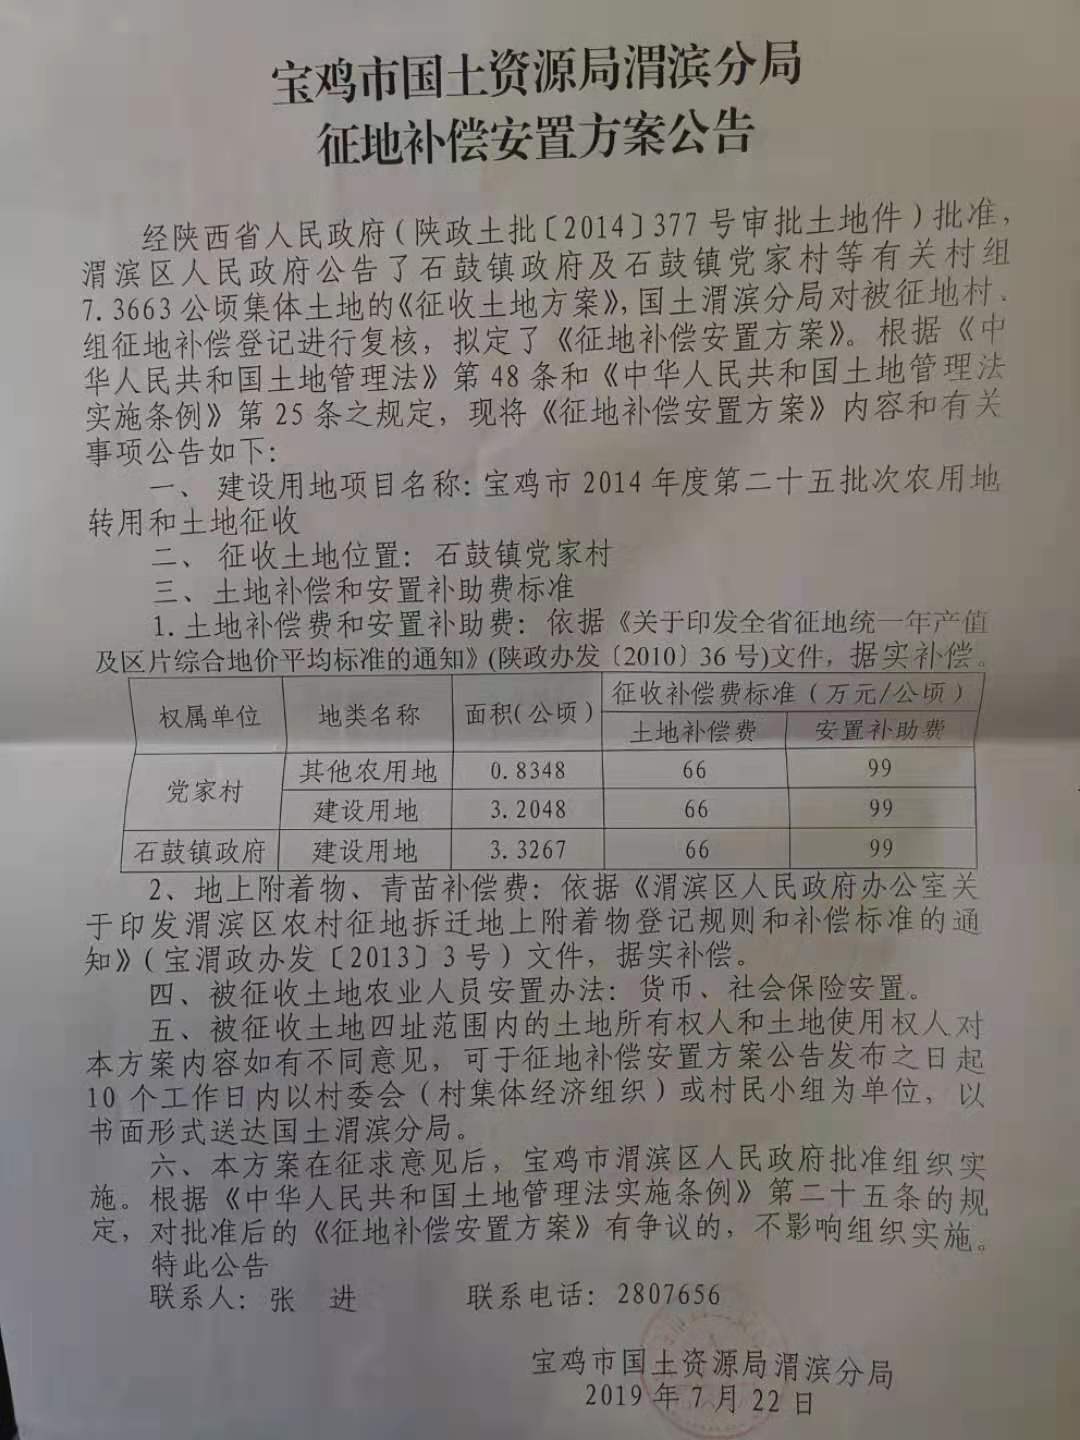 宝鸡市国土资源局渭滨分局
征地补偿安置方案公告
经陕西省人民政府（陕政土批〔2014〕377号审批土地件）批准，
渭滨区人民政府公告了石鼓镇政府及石鼓镇党家村等有关村组
7.3663公顷集体土地的《征收土地方案》，国土渭滨分局对被征地村、
组征地补偿登记进行复核，拟定了《征地补偿安置方案》。根据《中
华人民共和国土地管理法》第48条和《中华人民共和国土地管理法
实施条例》第25条之规定，现将《征地补偿安置方案》内容和有关
事项公告如下：
一、 建设用地项目名称：宝鸡市2014年度第二十五批次农用地
转用和土地征收
二、 征收土地位置： 石鼓镇党家村
三、土地补偿和安置补助费标准
1.土地补偿费和安置补助费：依据《关于印发全省征地统一年产值
及区片综合地价平均标准的通知》(陕政办发〔2010〕36号)文件，据实补偿。
权属单位 地类名称 面积(公顷) 征收补偿费标准（万元/公顷）
土地补偿费 安置补助费
党家村 其他农用地 0.8348 66 99
建设用地 3.2048 66 99
石鼓镇政府 建设用地 3.3267 66 99
2、地上附着物、青苗补偿费：依据《渭滨区人民政府办公室关
于印发渭滨区农村征地拆迁地上附着物登记规则和补偿标准的通
知》（宝渭政办发〔2013〕3号）文件，据实补偿。
四、被征收土地农业人员安置办法：货币、社会保险安置。
五、被征收土地四址范围内的土地所有权人和土地使用权人对
本方案内容如有不同意见，可于征地补偿安置方案公告发布之日起
10个工作日内以村委会（村集体经济组织）或村民小组为单位，以
书面形式送达国土渭滨分局。
六、本方案在征求意见后，宝鸡市渭滨区人民政府批准组织实
施。根据《中华人民共和国土地管理法实施条例》第二十五条的规
定，对批准后的《征地补偿安置方案》有争议的，不影响组织实施。
特此公告
联系人：张 进 联系电话：2807656
宝鸡市国土资源局渭滨分局
2019年7月22日